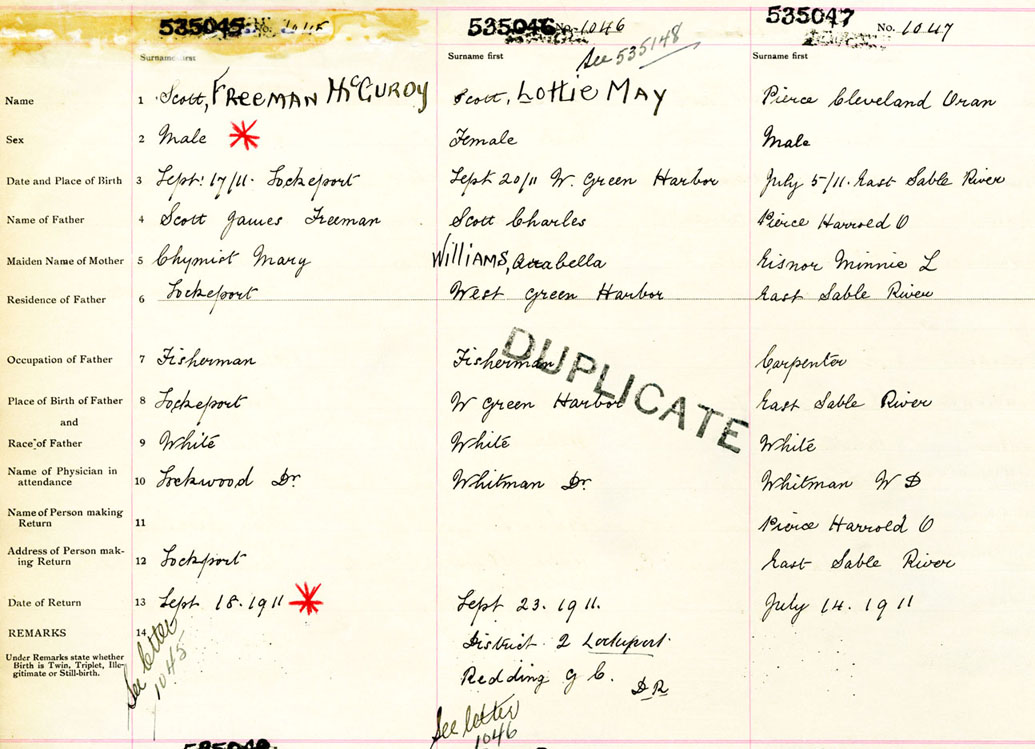 535045 No. 1045
535046 No. 1046
See 535148
535047 No. 1047
Surname first
Surname first
Surname first
Name 1 Scott, FREEMAN McCURDY
Scott, LOttiE MAY
Pierce Cleveland Oran
Sex 2 Male
Female
Male
Date and Place of Birth 3 Sept: 17/11. Lockeport
Sept 20/11 W. Green Harbor
July 5/11. East Sable River
Name of Father 4 Scott James Freeman
Scott Charles
Pierce Harrold O
Maiden Name of Mother 5 Chymist Mary
WilliAMS, Arabella
Eisnor Minnie L
Residence of Father 6 Lockeport
West Green Harbor
East Sable River
Occupation of Father 7 Fisherman
Fisherman
Carpenter
DUPLICATE
Place of Birth of Father 8 Lockeport
W Green Harbor
East Sable River
and
Race of Father 9 White
White
White
Name of Physician in
attendance 10 Lockwood Dr
Whitman Dr.
Whitman W D
Name of Person making
Return 11
Pierce Harrold O
Address of Person mak-
ing Return 12 Lockport
East Sable River
Date of Return 13 Sept 18. 1911
Sept 23. 1911.
July 14. 1911
REMARKS 14
Under Remarks state whether
Birth is Twin, Triplet, Ille-
gitimate or Still-birth.
See letter
1045
District 2 Lockeport
Redding G C. D.R
See letter
1046